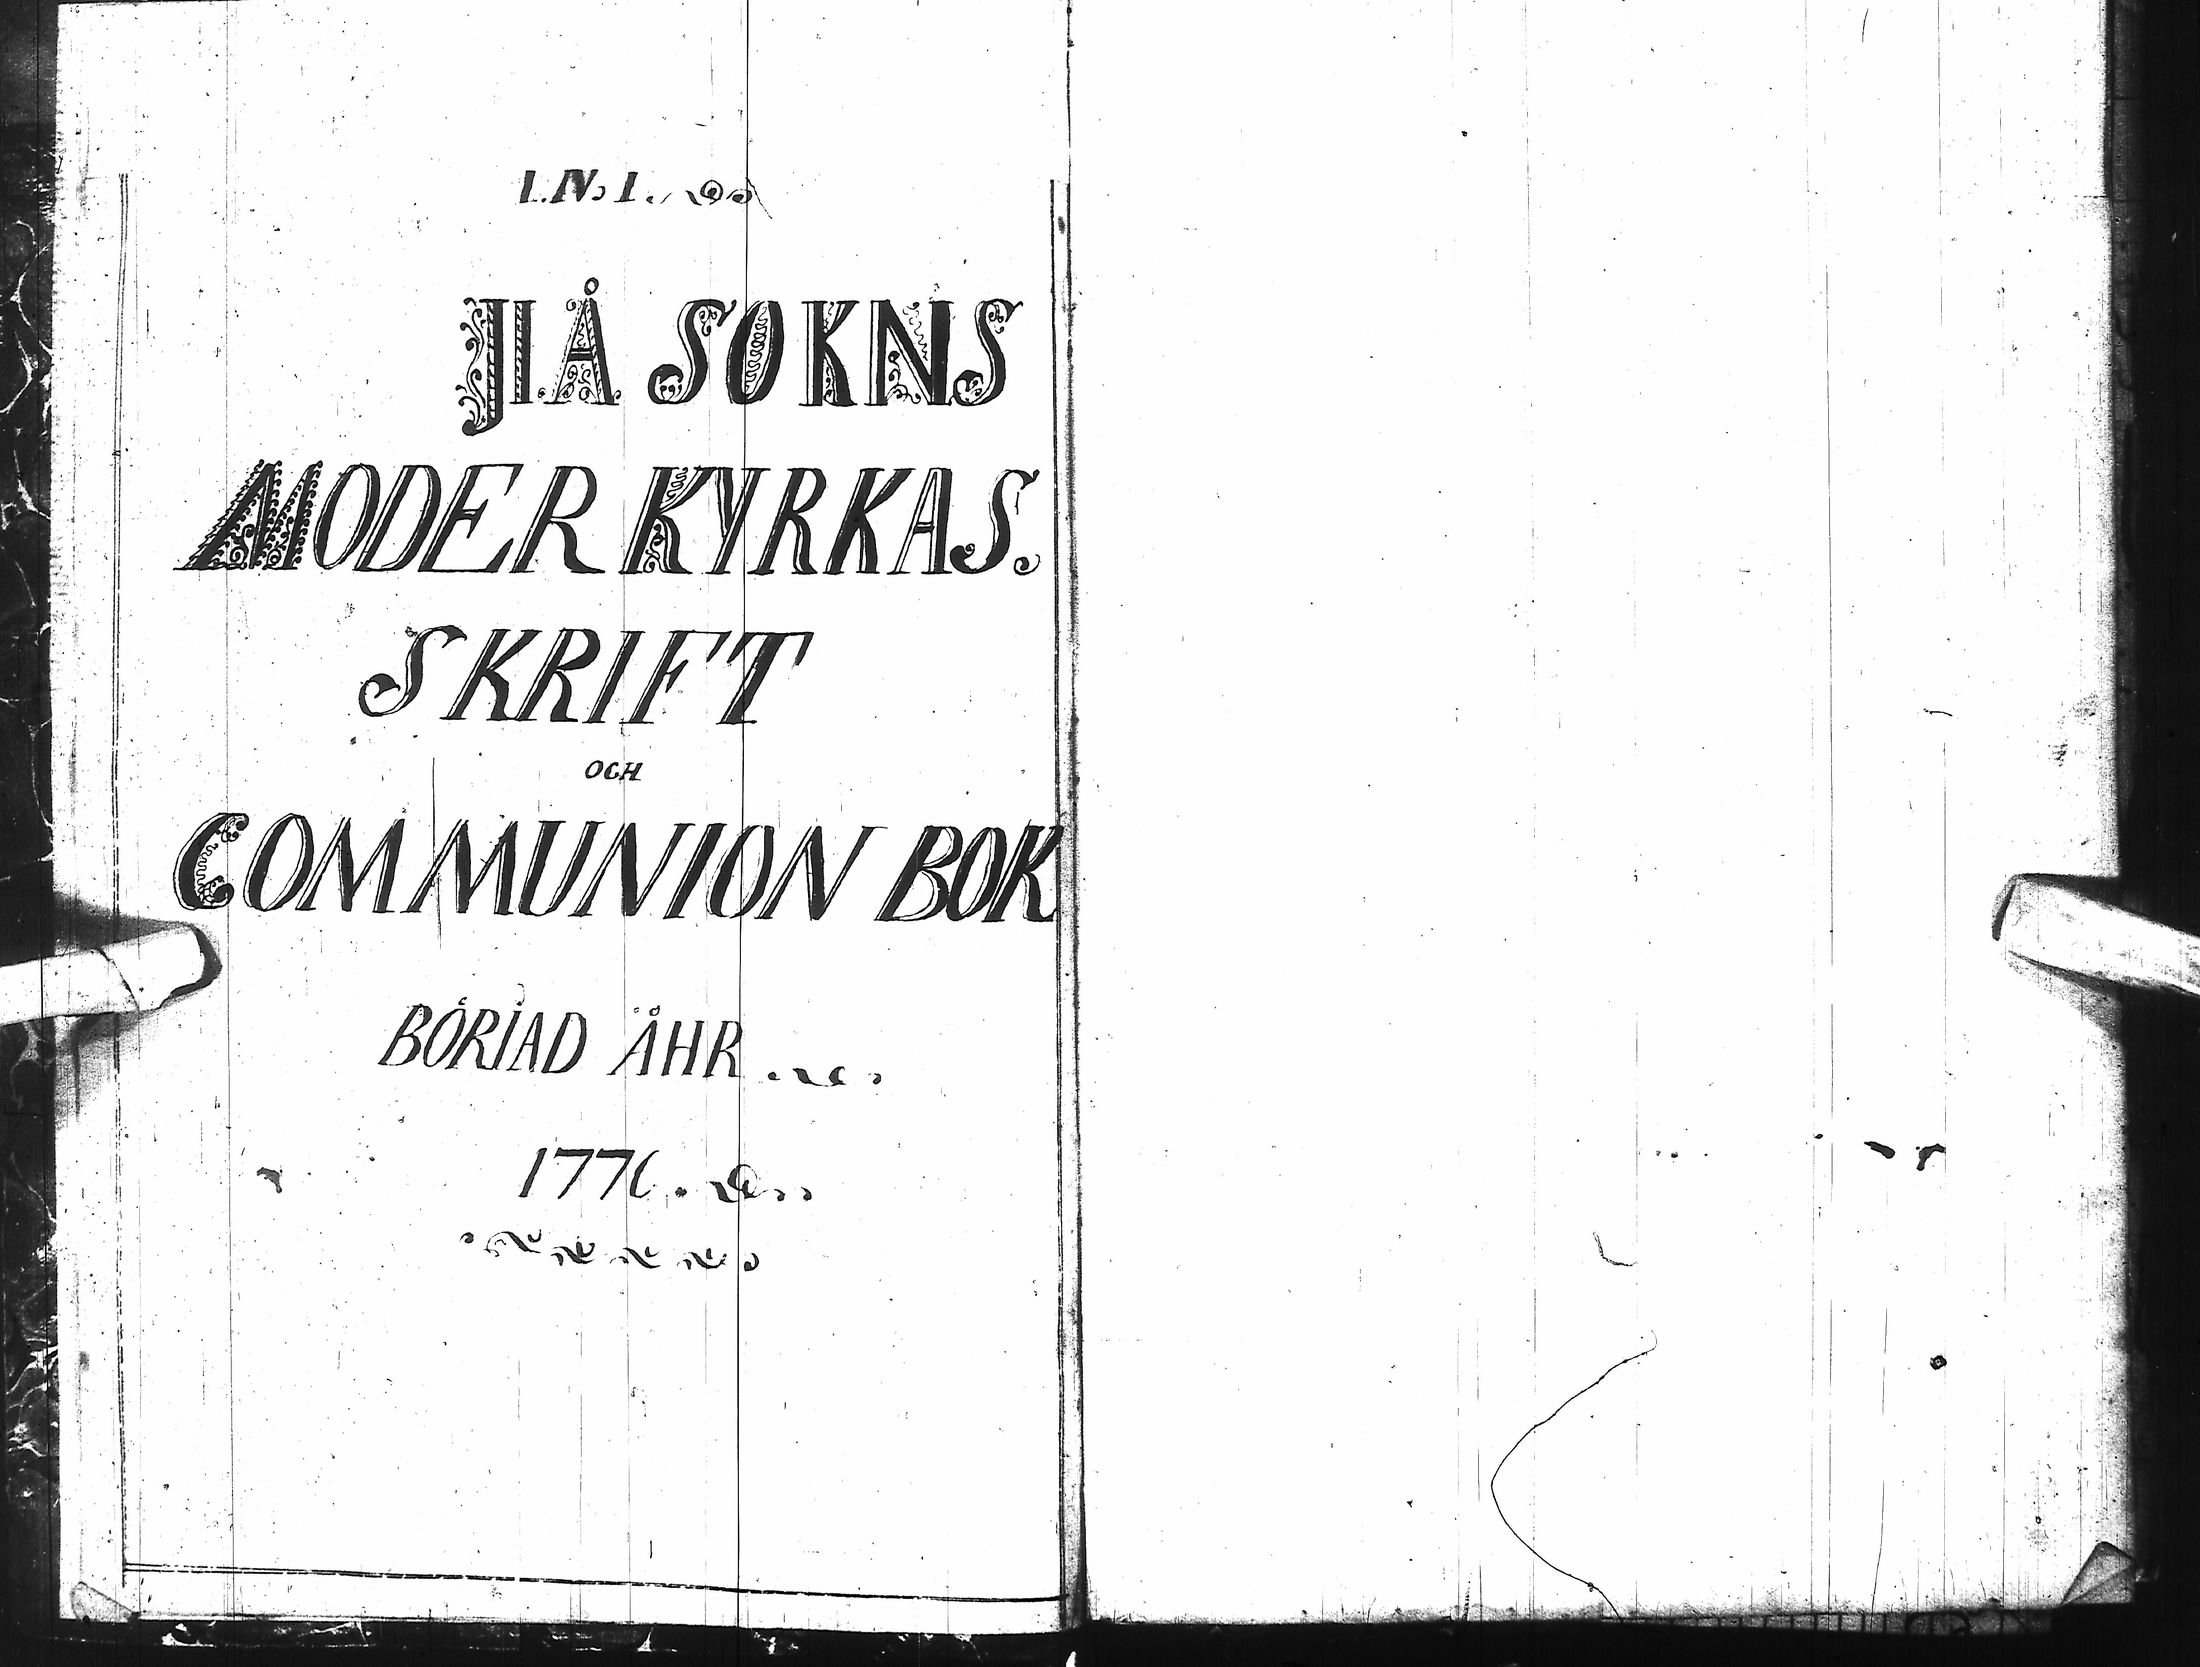 I.N.I.
JIÅ SOKNS
MODER KYRKAS.
SKRIFT
OCH
COMMUNION BOK
BÖRJAD ÅHR
1776.